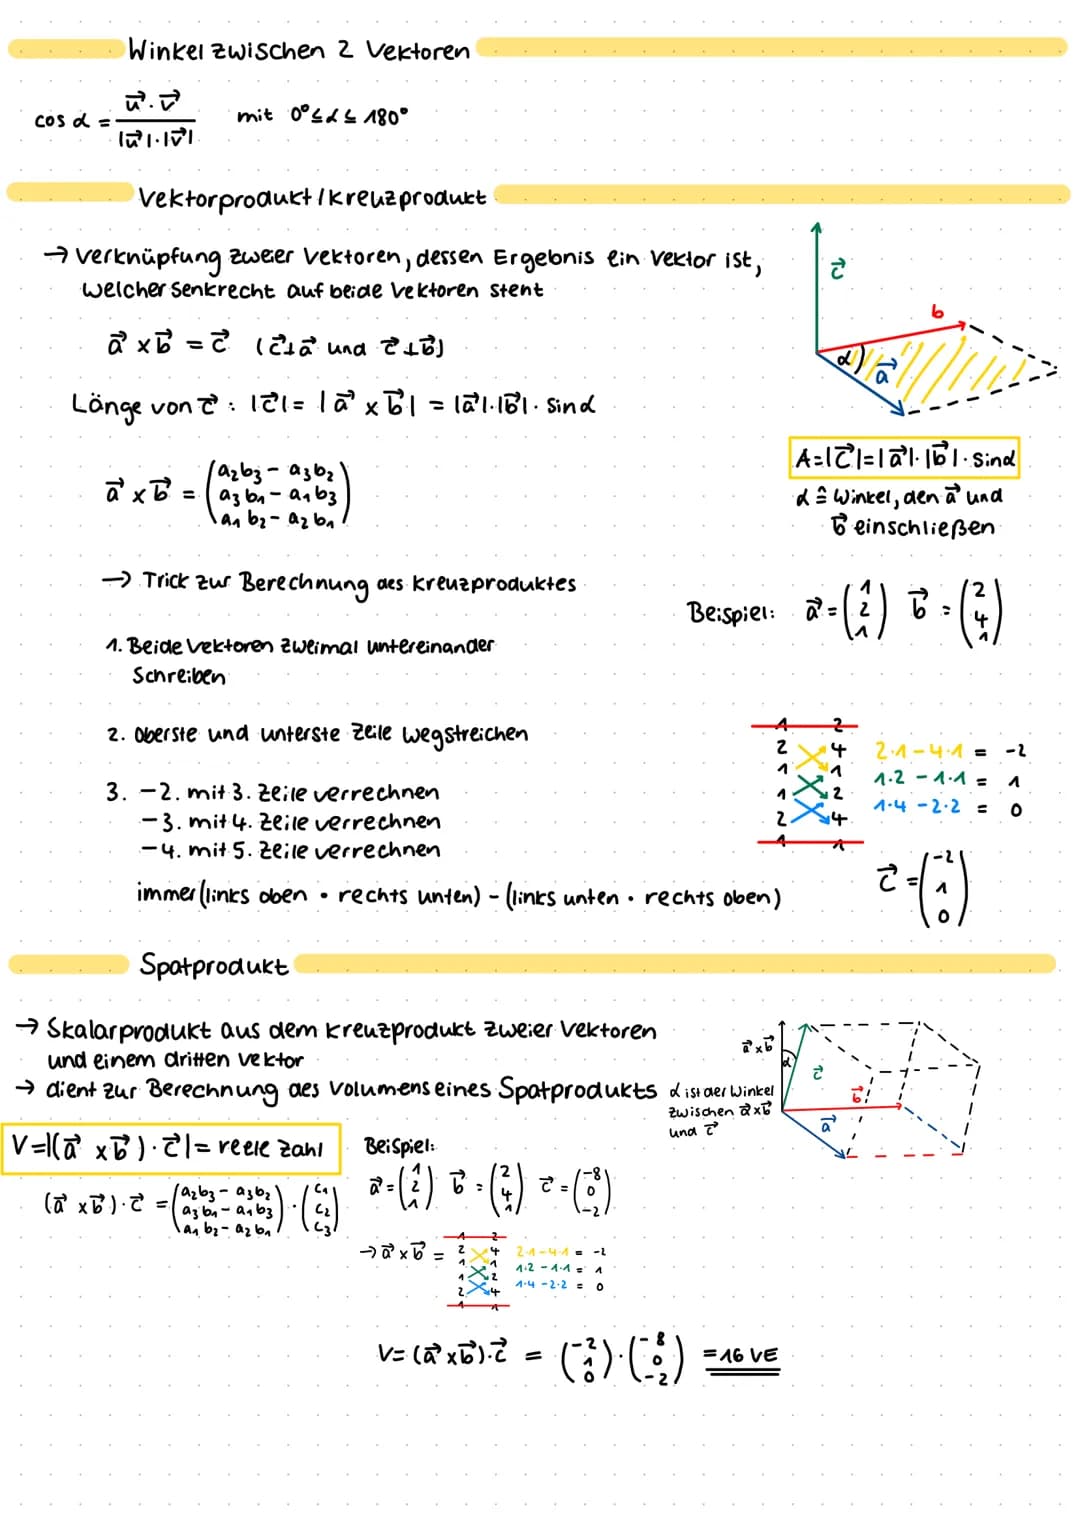 Winkel zwischen 2 Vektoren
cos α = (u⃗ · v⃗) / (|u⃗| · |v⃗|) mit 0° ≤ α ≤ 180°
Vektorprodukt / Kreuzprodukt
→ Verknüpfung zweier Vektoren, dessen Ergebnis ein Vektor ist,
welcher senkrecht auf beide Vektoren steht
a⃗ × b⃗ = c⃗ (c⃗⊥a⃗ und c⃗⊥b⃗)
Länge von c⃗ : |c⃗| = |a⃗ × b⃗| = |a⃗|·|b⃗| · sinα
c⃗
b
α
a⃗
A=|c⃗|=|a⃗|·|b⃗|·sinα
α ≙ Winkel, den a⃗ und
b⃗ einschließen
a⃗ × b⃗ = (a₂b₃ - a₃b₂
a₃b₁ - a₁b₃
a₁b₂ - a₂b₁)
→ Trick zur Berechnung des Kreuzproduktes
Beispiel: a⃗ = (1 2 1) b⃗ = (2 4 1)
1. Beide Vektoren zweimal untereinander
Schreiben
2. Oberste und unterste Zeile wegstreichen
3. -2. mit 3. Zeile verrechnen
-3. mit 4. Zeile verrechnen
-4. mit 5. Zeile verrechnen
immer (links oben · rechts unten) - (links unten · rechts oben)
1 2
2 4 2·1-4·1 = -2
1 1 1·2 -1·1 = 1
1 2 1·4 -2·2 = 0
2 4
1 1
c⃗ = (-2 1 0)
Spatprodukt
→ Skalarprodukt aus dem Kreuzprodukt zweier Vektoren
und einem dritten Vektor
→ dient zur Berechnung des Volumens eines Spatprodukts
a⃗×b⃗
α
c⃗
b⃗
a⃗
α ist der Winkel
zwischen a⃗×b⃗
und c⃗
V=|(a⃗ × b⃗) · c⃗| = reele Zahl
(a⃗ × b⃗) · c⃗ = (a₂b₃ - a₃b₂
a₃b₁ - a₁b₃
a₁b₂ - a₂b₁) · (c₁ c₂ c₃)
Beispiel:
a⃗ = (1 2 1) b⃗ = (2 4 1) c⃗ = (-8 0 -2)
→ a⃗ × b⃗ =
1 2
2 4 2·1-4·1 = -2
1 1 1·2 -1·1 = 1
1 2 1·4 -2·2 = 0
2 4
1 1
V = (a⃗ × b⃗)·c⃗ = (-2 1 0) · (-8 0 -2) = 16 VE